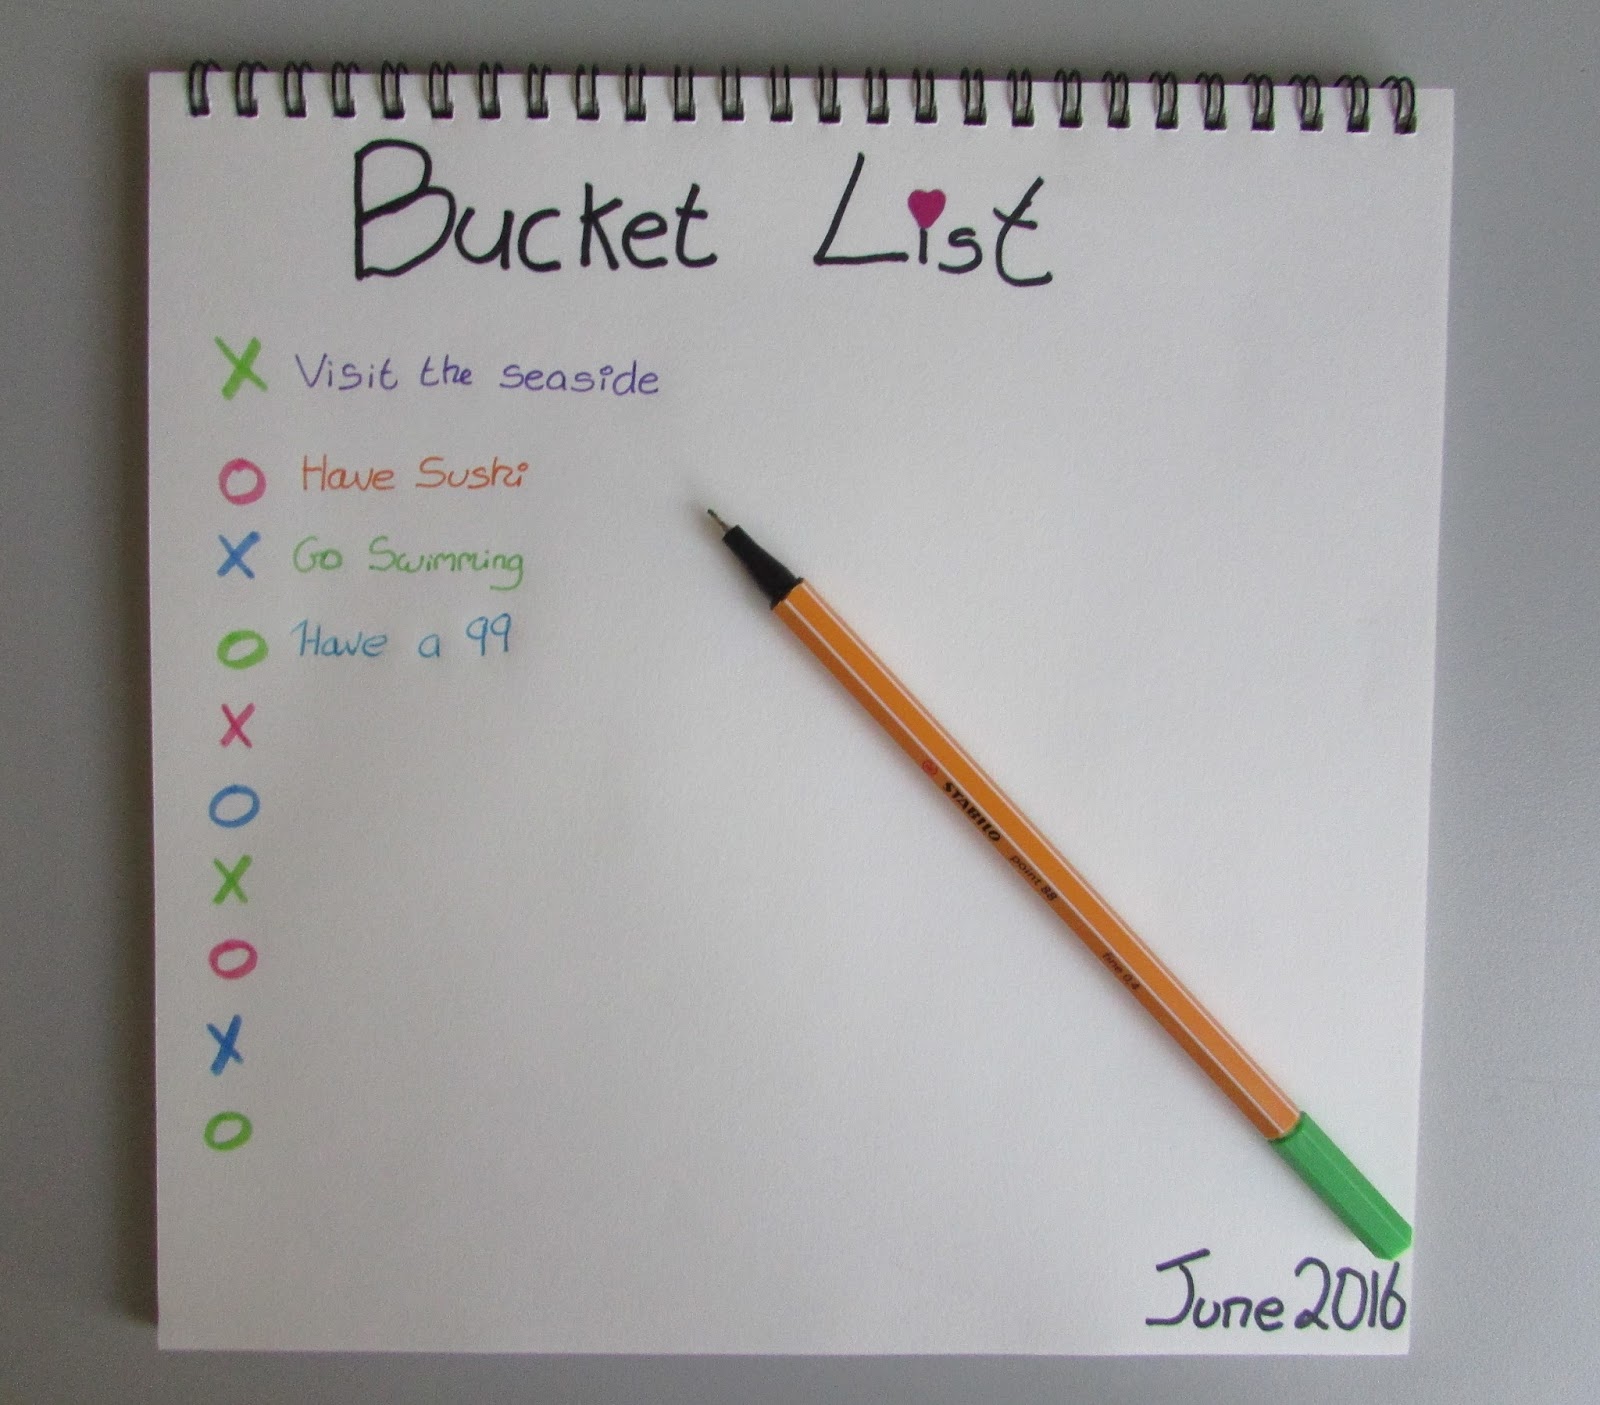 Bucket List
X Visit the seaside
O Have Sushi
X Go Swimming
O Have a 99
X
O
X
O
X
O
STABILO point 88 fine 0,4
June 2016